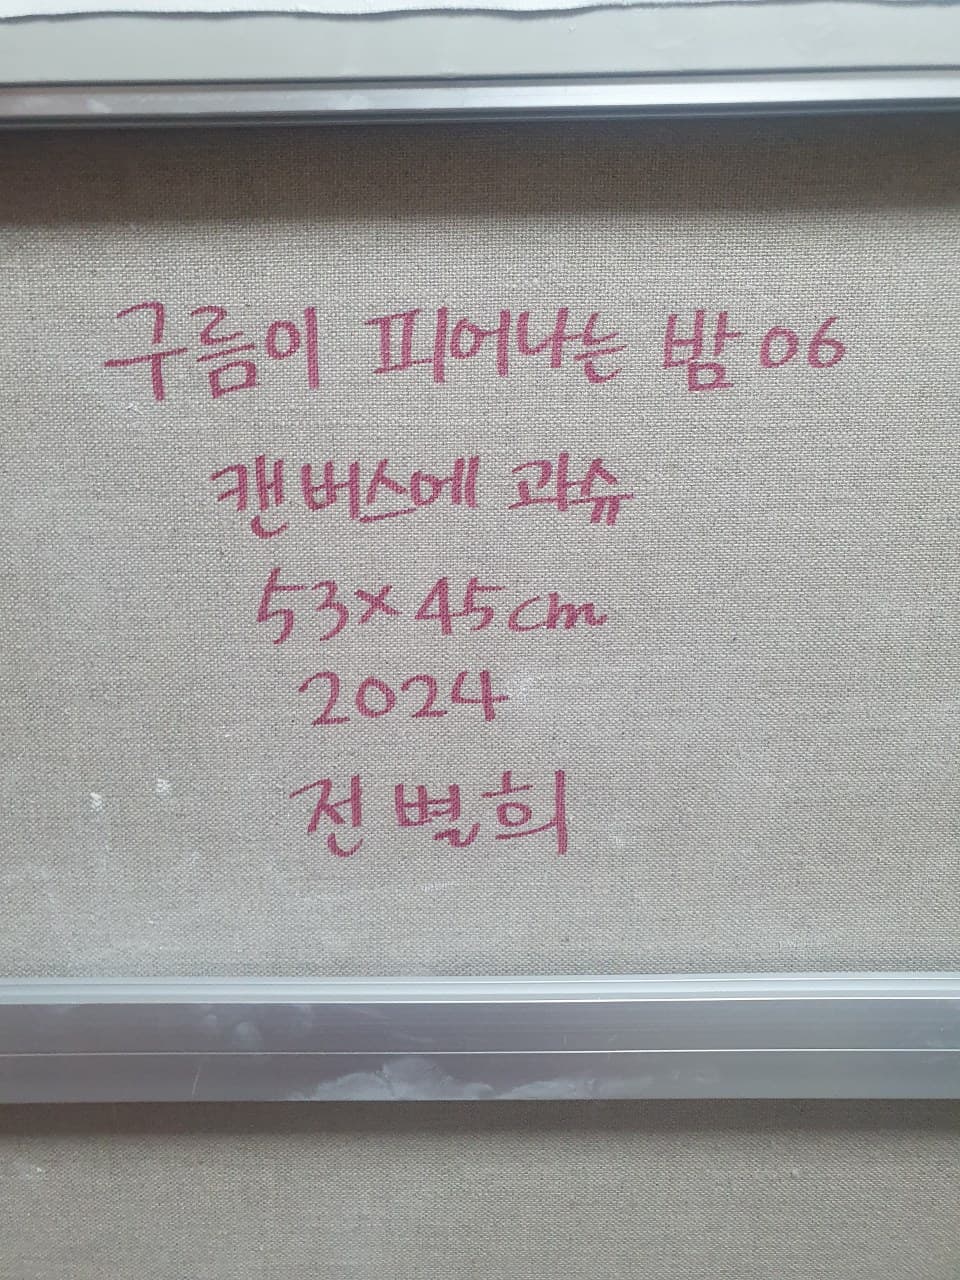 구름이 피어나는 밤 06
캔버스에 과슈
53×45cm
2024
전별희